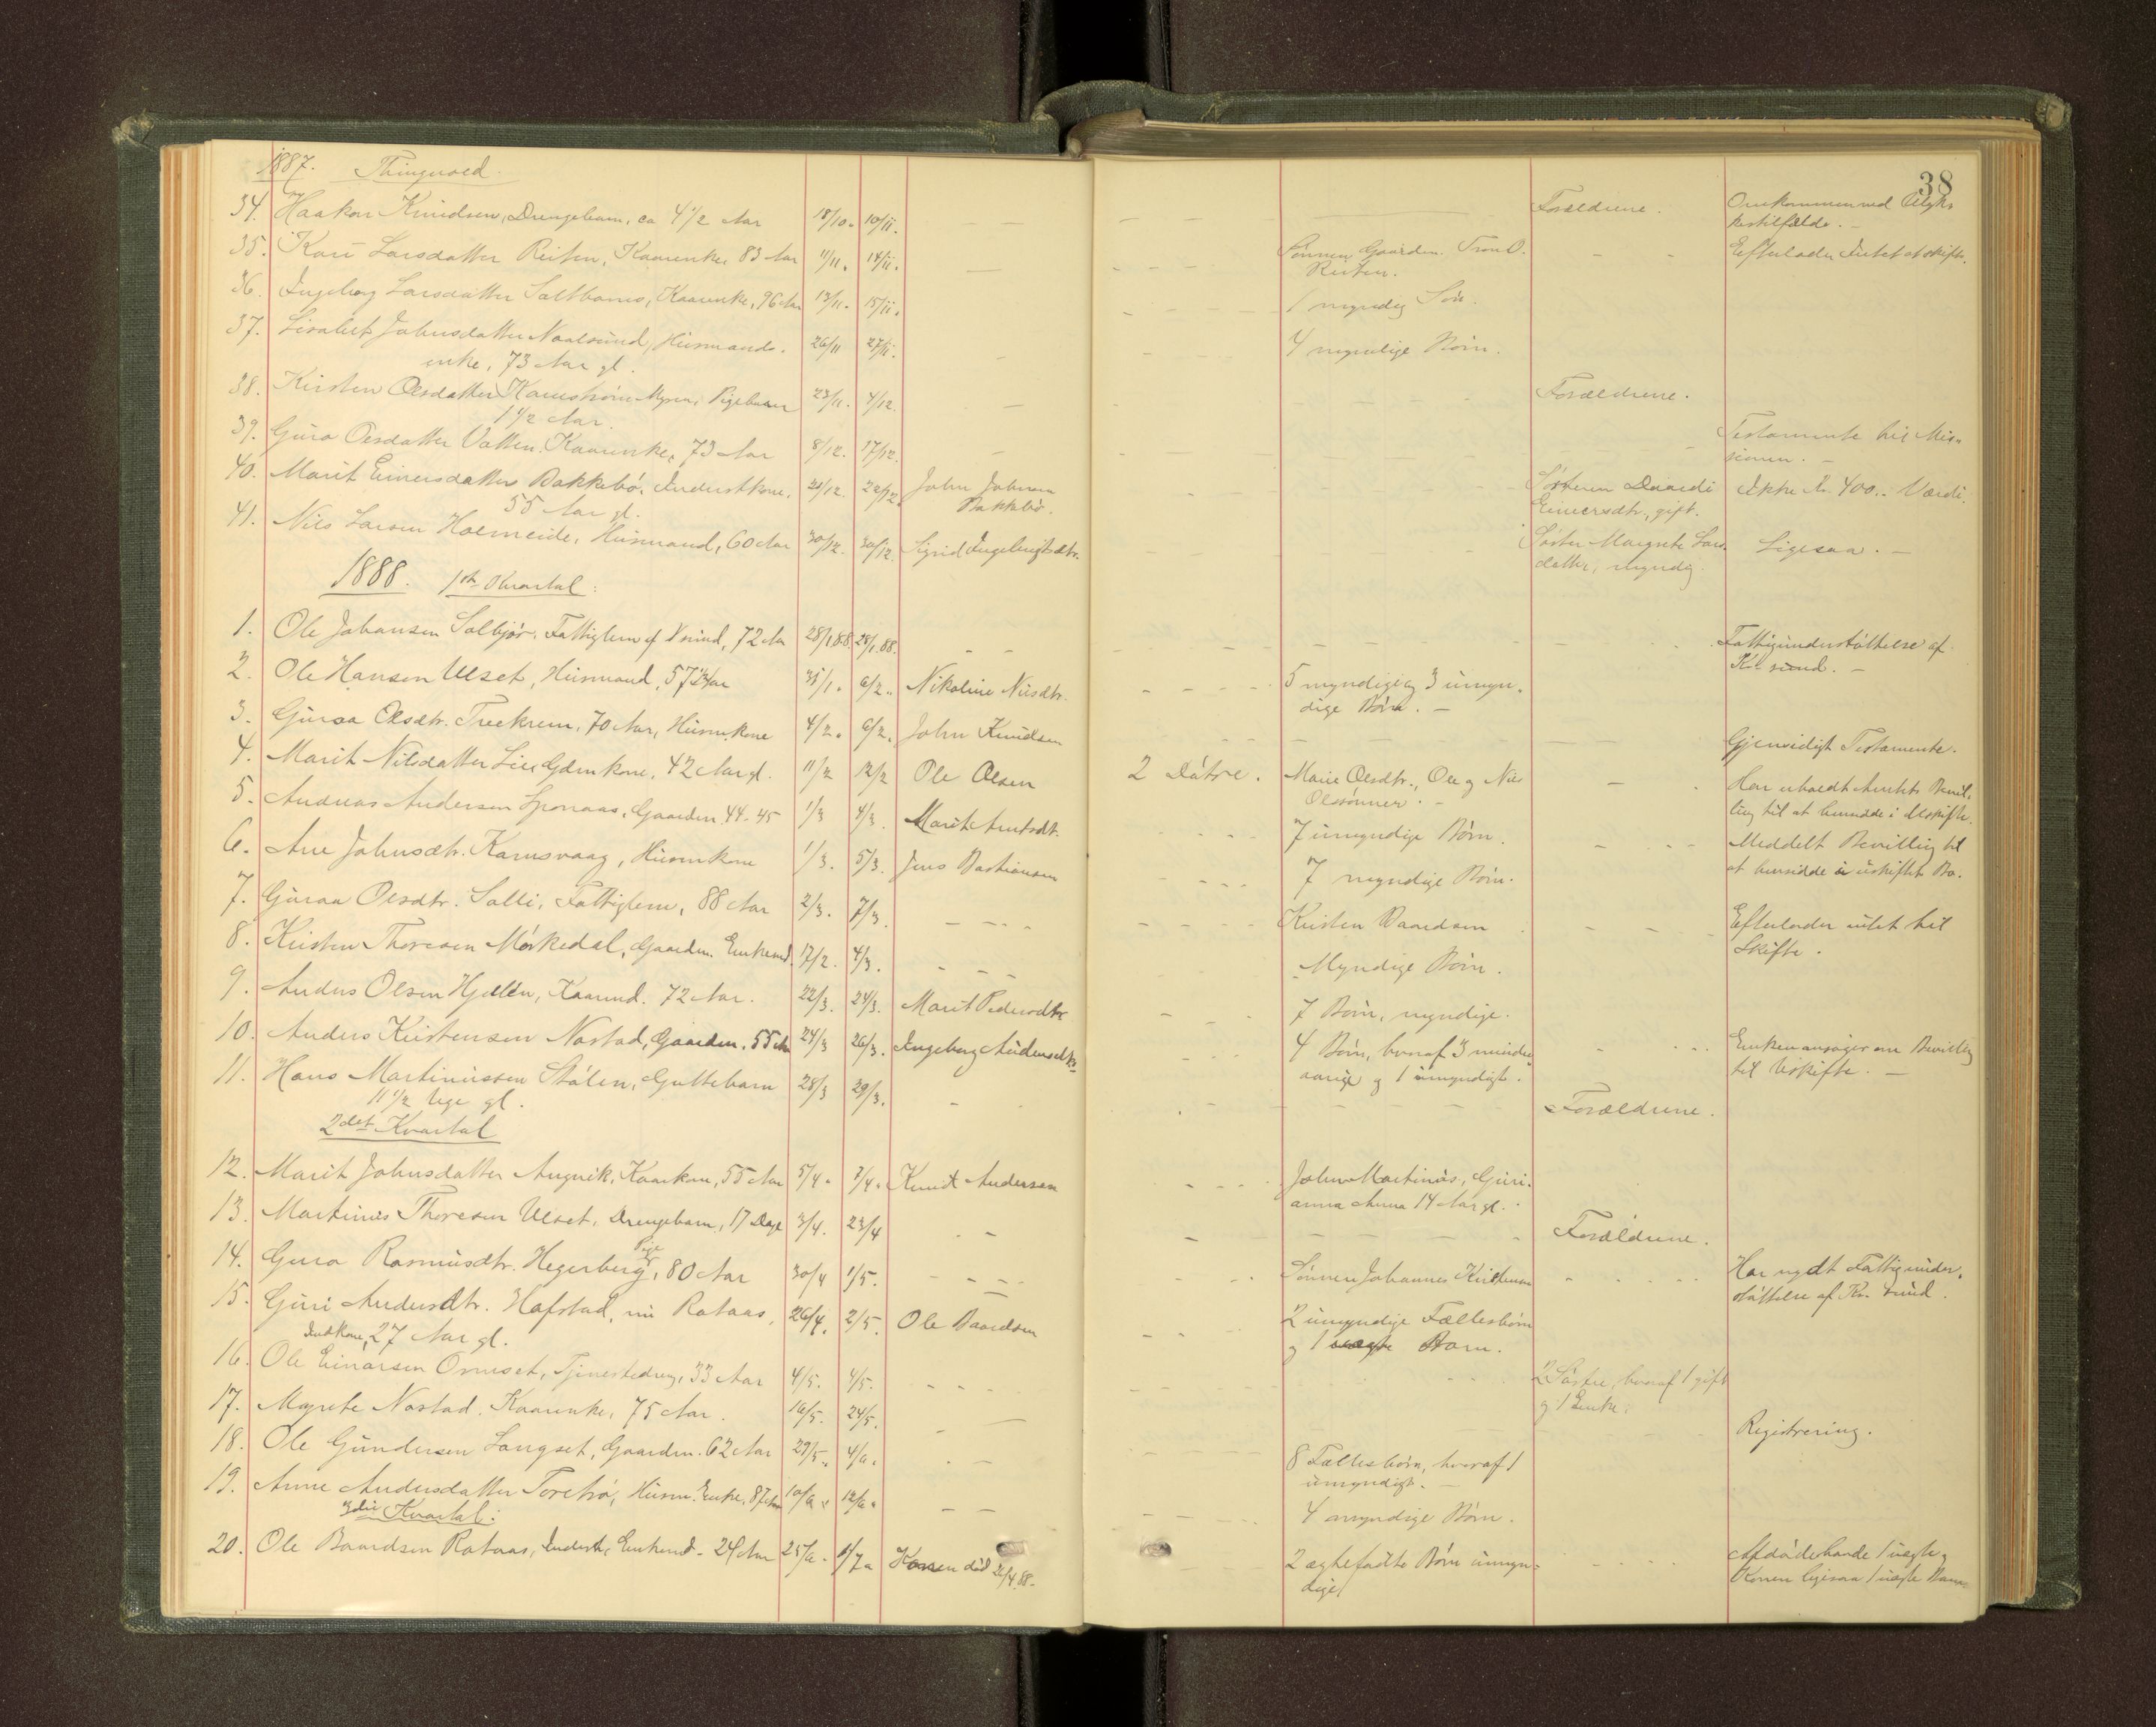 38
1887. Thingvold.
34. Haakon Knudsen, Drengebarn, ca 4 1/2 Aar 18/10. 10/11. Forældrene. Omkommen ved Ulyk-
kestilfælde. -
35. Kari Larsdatter Reiten, Kaarenke, 83 Aar 11/11. 14/11. Sønnen Gaardm. Tron O. Efterlader Intet at skifte.
Reiten.
36. Ingeborg Larsdatter Kaarenke, 96 Aar 13/11. 15/11. 1 myndig Søn.
37. Lisabet Johnsdatter Naalsund, Husmands- 26/11 27/11. 4 myndige Børn.
enke, 73 Aar gl.
38. Kirsten Olsdatter Pigebarn 23/11. 4/12. Forældrene.
1 1/2 Aar.
39. Gura Olsdatter Vatten, Kaarenke, 73 Aar 8/12. 17/12. Testamente til Mis-
sionen. -
40. Marit Einersdatter Bakkebø, Inderstkone, 21/12. 22/12. John Johnsen Søsteren Baardi Ikke Kr 400.. Værdi.
55 Aar gl. Bakkebø. Einersdtr., gift.
41. Nils Larsen Holmeide, Husmand, 60 Aar 30/12. 30/12. Sigrid Ingebrigtsdtr. Søster Margrete Lars- Ligesaa. -
datter, myndig.
1888. 1ste Kvartal:
1. Ole Johansen Solbjør, Fattiglem af Krsund, 72 Aar 28/1.88. 28/1.88. Fattigunderstøttelse af
Kr sund. -
2. Ole Hansen Ulset, Husmand, 57 Aar 31/1. 6/2. Nikoline Nilsdtr. 5 myndige og 3 umyn-
dige Børn. -
3. Guroa Olsdtr. Treekrem, 70 Aar, Husm.kone 4/2. 6/2. John Knudsen Gjensidigt Testamente.
4. Marit Nilsdatter Lien Gdmkone, 42 Aar gl. 11/2 12/2 Ole Olsen 2 Døtre. Marie Olsdtr., Ole og Nils Har erholdt Amtets Bevil-
Olssønner. - ling til at hensidde i Uskifte.
5. Andreas Andersen Sponaas, Gaardm. 44-45 1/3 4/3. Marit Arntsdt. 7 umyndige Børn. Meddelt Bevilling til
at hensidde i uskiftet Bo.
6. Ane Johnsdtr. Karnsvaag, Husm kone 1/3. 5/3. Jens Bastiansen 7 myndige Børn.
7. Guroa Olsdtr. Solli, Fattiglem, 88 Aar 2/3. 7/3. Kristen Baardsen Efterlader intet til
Skifte.
8. Kristen Thoresen Mørkedal, Gaardm. Enkemd. 17/2. 4/3. Myndige Børn.
9. Anders Olsen Hjellen, Kaarmd. 72 Aar. 22/3. 24/3. Marit Pedersdtr. 7 Børn, myndige.
10. Anders Kristensen Nastad, Gaardm. 55 Aar 24/3 26/3. Ingeborg Andersdtr. 4 Børn, hvoraf 3 mindre- Enken ansøger om Bevilling
aarige og 1 umyndigt. til Uskifte. -
11. Hans Martinussen Stålen, Guttebarn 28/3 29/3. Forældrene.
11 1/2 Uge gl.
2det Kvartal
12. Marit Johnsdatter Angvik, Kaarkone, 55 Aar 5/4. 7/4. Knut Andersen John Martinus, Guri-
anna Anna 14 Aar gl.
13. Martinus Thoresen Ulset, Drengebarn, 17 Dage 3/4. 23/4 Forældrene.
14. Gura Rasmusdtr. Hegerberg, Pige, 80 Aar 30/4 1/5. Sønnen Johannes Kristensen Har nydt Fattigunder-
støttelse af Kr. sund.
15. Guri Andersdtr. Hafstad, nu Rotaas, 26/4. 2/5. Ole Baardsen 2 umyndige Fællesbørn
Indkone, 27 Aar gl. og 1 uægte Barn.
16. Ole Einarsen Ormset, Tjenestedreng, 33 Aar 4/5. 4/5. 2 Søstre, hvoraf 1 gift
og 1 Enke.
17. Magrete Nastad, Kaarenke, 75 Aar. 16/5. 24/5. Registrering.
18. Ole Gundersen Langset, Gaardm. 62 Aar 29/5. 4/6. 8 Fællesbørn, hvoraf 1
umyndigt. -
19. Anne Andersdatter Torehø, Husm. Enke, 87 Aar 10/6. 12/6. 4 myndige Børn.
3die Kvartal:
20. Ole Baardsen Rotaas, Inderst, Enkemd. 24 Aar 25/6. 1/7. Konen død 26/4 88. 2 ægtefødte Børn umyn- Afdøde havde 1 uægte,
dige Konen ligesaa 1 uægte Barn